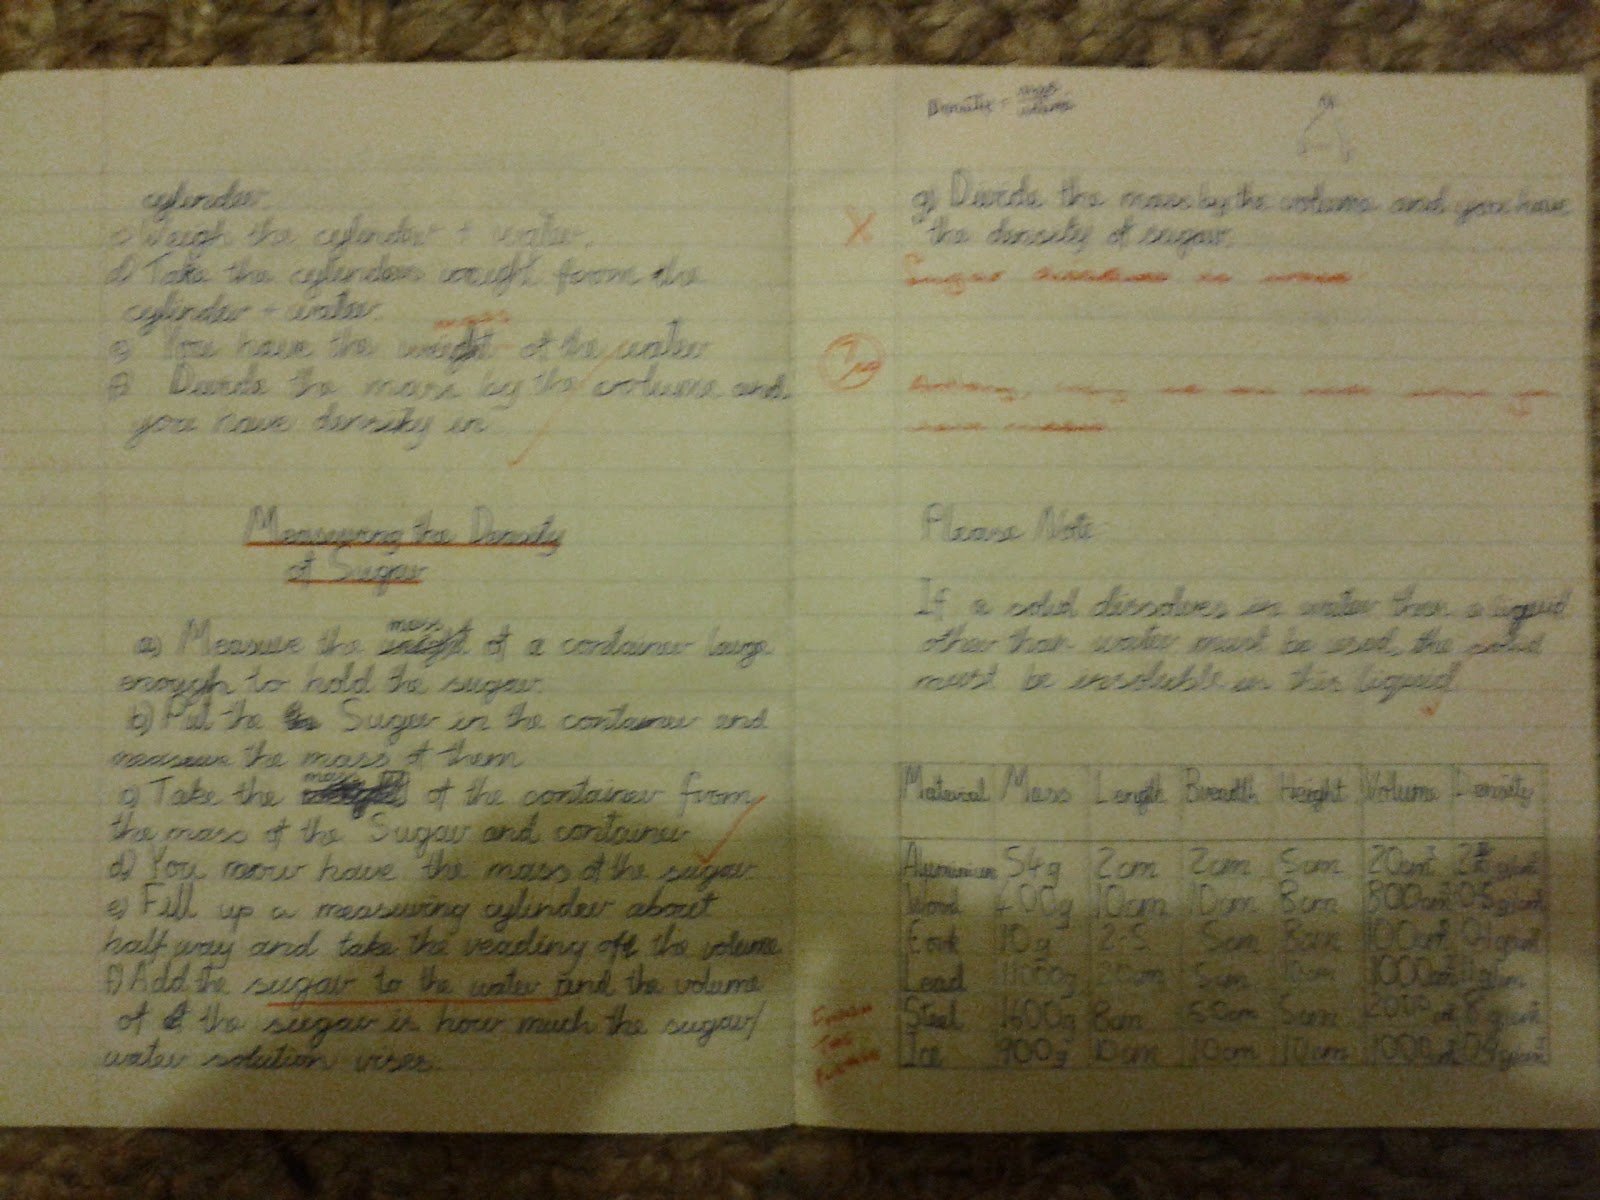 cylinder.
c) Weigh the cylinder + water.
d) Take the cylinders weight from the
cylinder + water.
mass
e) You have the weight of the water
f) Divide the mass by the volume and
you have density in
Measuring the Density
of Sugar
mass
a) Measure the weight of a container large
enough to hold the sugar.
b) Put the Sugar in the container and
measure the mass of them
mass
c) Take the of the container from
the mass of the Sugar and container
d) You now have the mass of the sugar.
e) Fill up a measuring cylinder about
half way and take the reading of the volume
f) Add the sugar to the water and the volume
of the sugar is how much the sugar/
water solution rises.
Density = mass
volume
g) Divide the mass by the volume and you have
the density of sugar.
Sugar dissolves in water
Please Note
If a solid dissolves in water then a liquid
other than water must be used, the solid
must be insoluble in this liquid
Material Mass Length Breadth Height Volume Density
Aluminium 54g 2cm 2cm 5cm 20cm³
Wood 400g 10cm 10cm 8cm 800cm³ 0.5 g/cm³
10g 5cm
Lead 5cm 1000cm³
Steel 1600g 8cm 5cm 8 g/cm³
Ice 900g 10cm 10cm 10cm 1000cm³